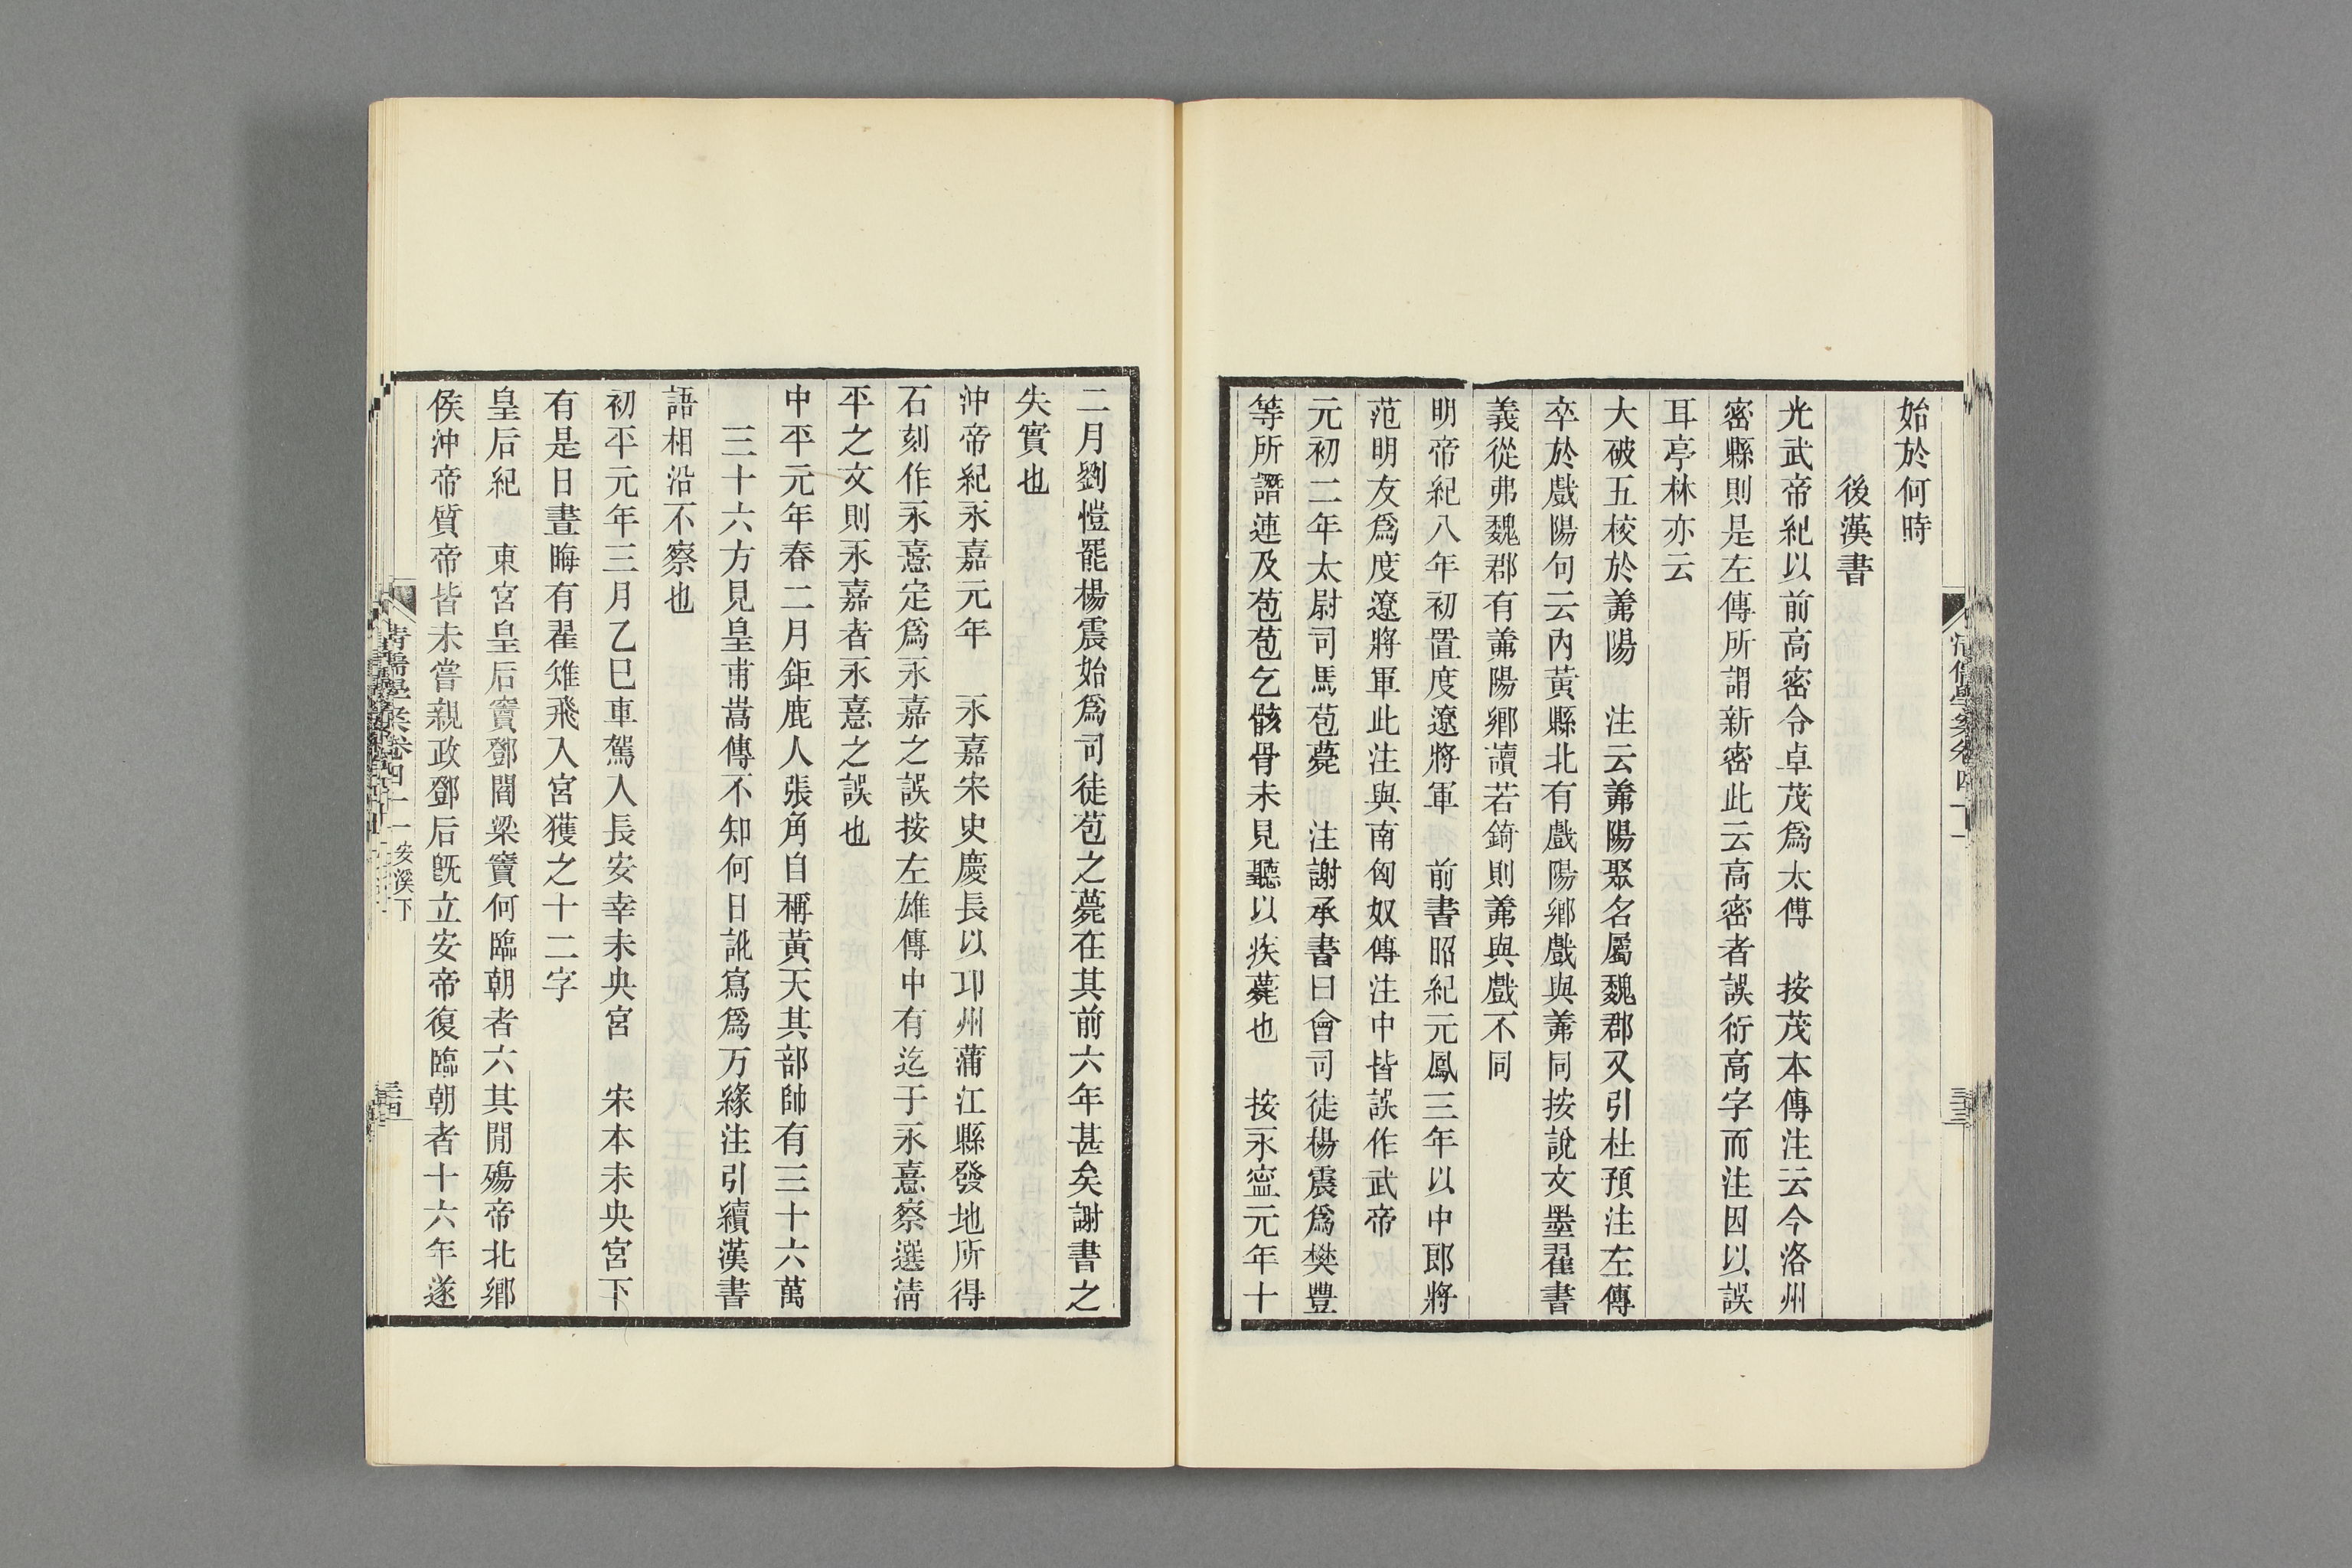 始於何時
後漢書
光武帝紀以前高密令卓茂爲太傅　按茂本傳注云今洛州
密縣則是左傳所謂新密此云高密者誤衍高字而注因以誤
耳亭林亦云
大破五校於羛陽　注云羛陽聚名屬魏郡又引杜預注左傳
卒於戲陽句云內黃縣北有戲陽鄉戲與羛同按說文墨翟書
義從弗魏郡有羛陽鄉讀若錡則羛與戲不同
明帝紀八年初置度遼將軍　前書昭紀元鳳三年以中郎將
范明友爲度遼將軍此注與南匈奴傳注中皆誤作武帝
元初二年太尉司馬苞薨　注謝承書曰會司徒楊震爲樊豐
等所譖連及苞苞乞骸骨未見聽以疾薨也　按永寧元年十
二月劉愷罷楊震始爲司徒苞之薨在其前六年甚矣謝書之
失實也
沖帝紀永嘉元年　永嘉宋史慶長以邛州蒲江縣發地所得
石刻作永憙定爲永嘉之誤按左雄傳中有迄于永憙察選清
平之文則永嘉者永憙之誤也
中平元年春二月鉅鹿人張角自稱黃天其部帥有三十六萬
三十六方見皇甫嵩傳不知何日訛寫爲万緣注引續漢書
語相沿不察也
初平元年三月乙巳車駕入長安幸未央宮　宋本未央宮下
有是日晝晦有翟雉飛入宮獲之十二字
皇后紀　東宮皇后竇鄧閻梁竇何臨朝者六其閒殤帝北鄉
侯沖帝質帝皆未嘗親政鄧后旣立安帝復臨朝者十六年遂
清儒學案卷四十一　安溪下
三十四